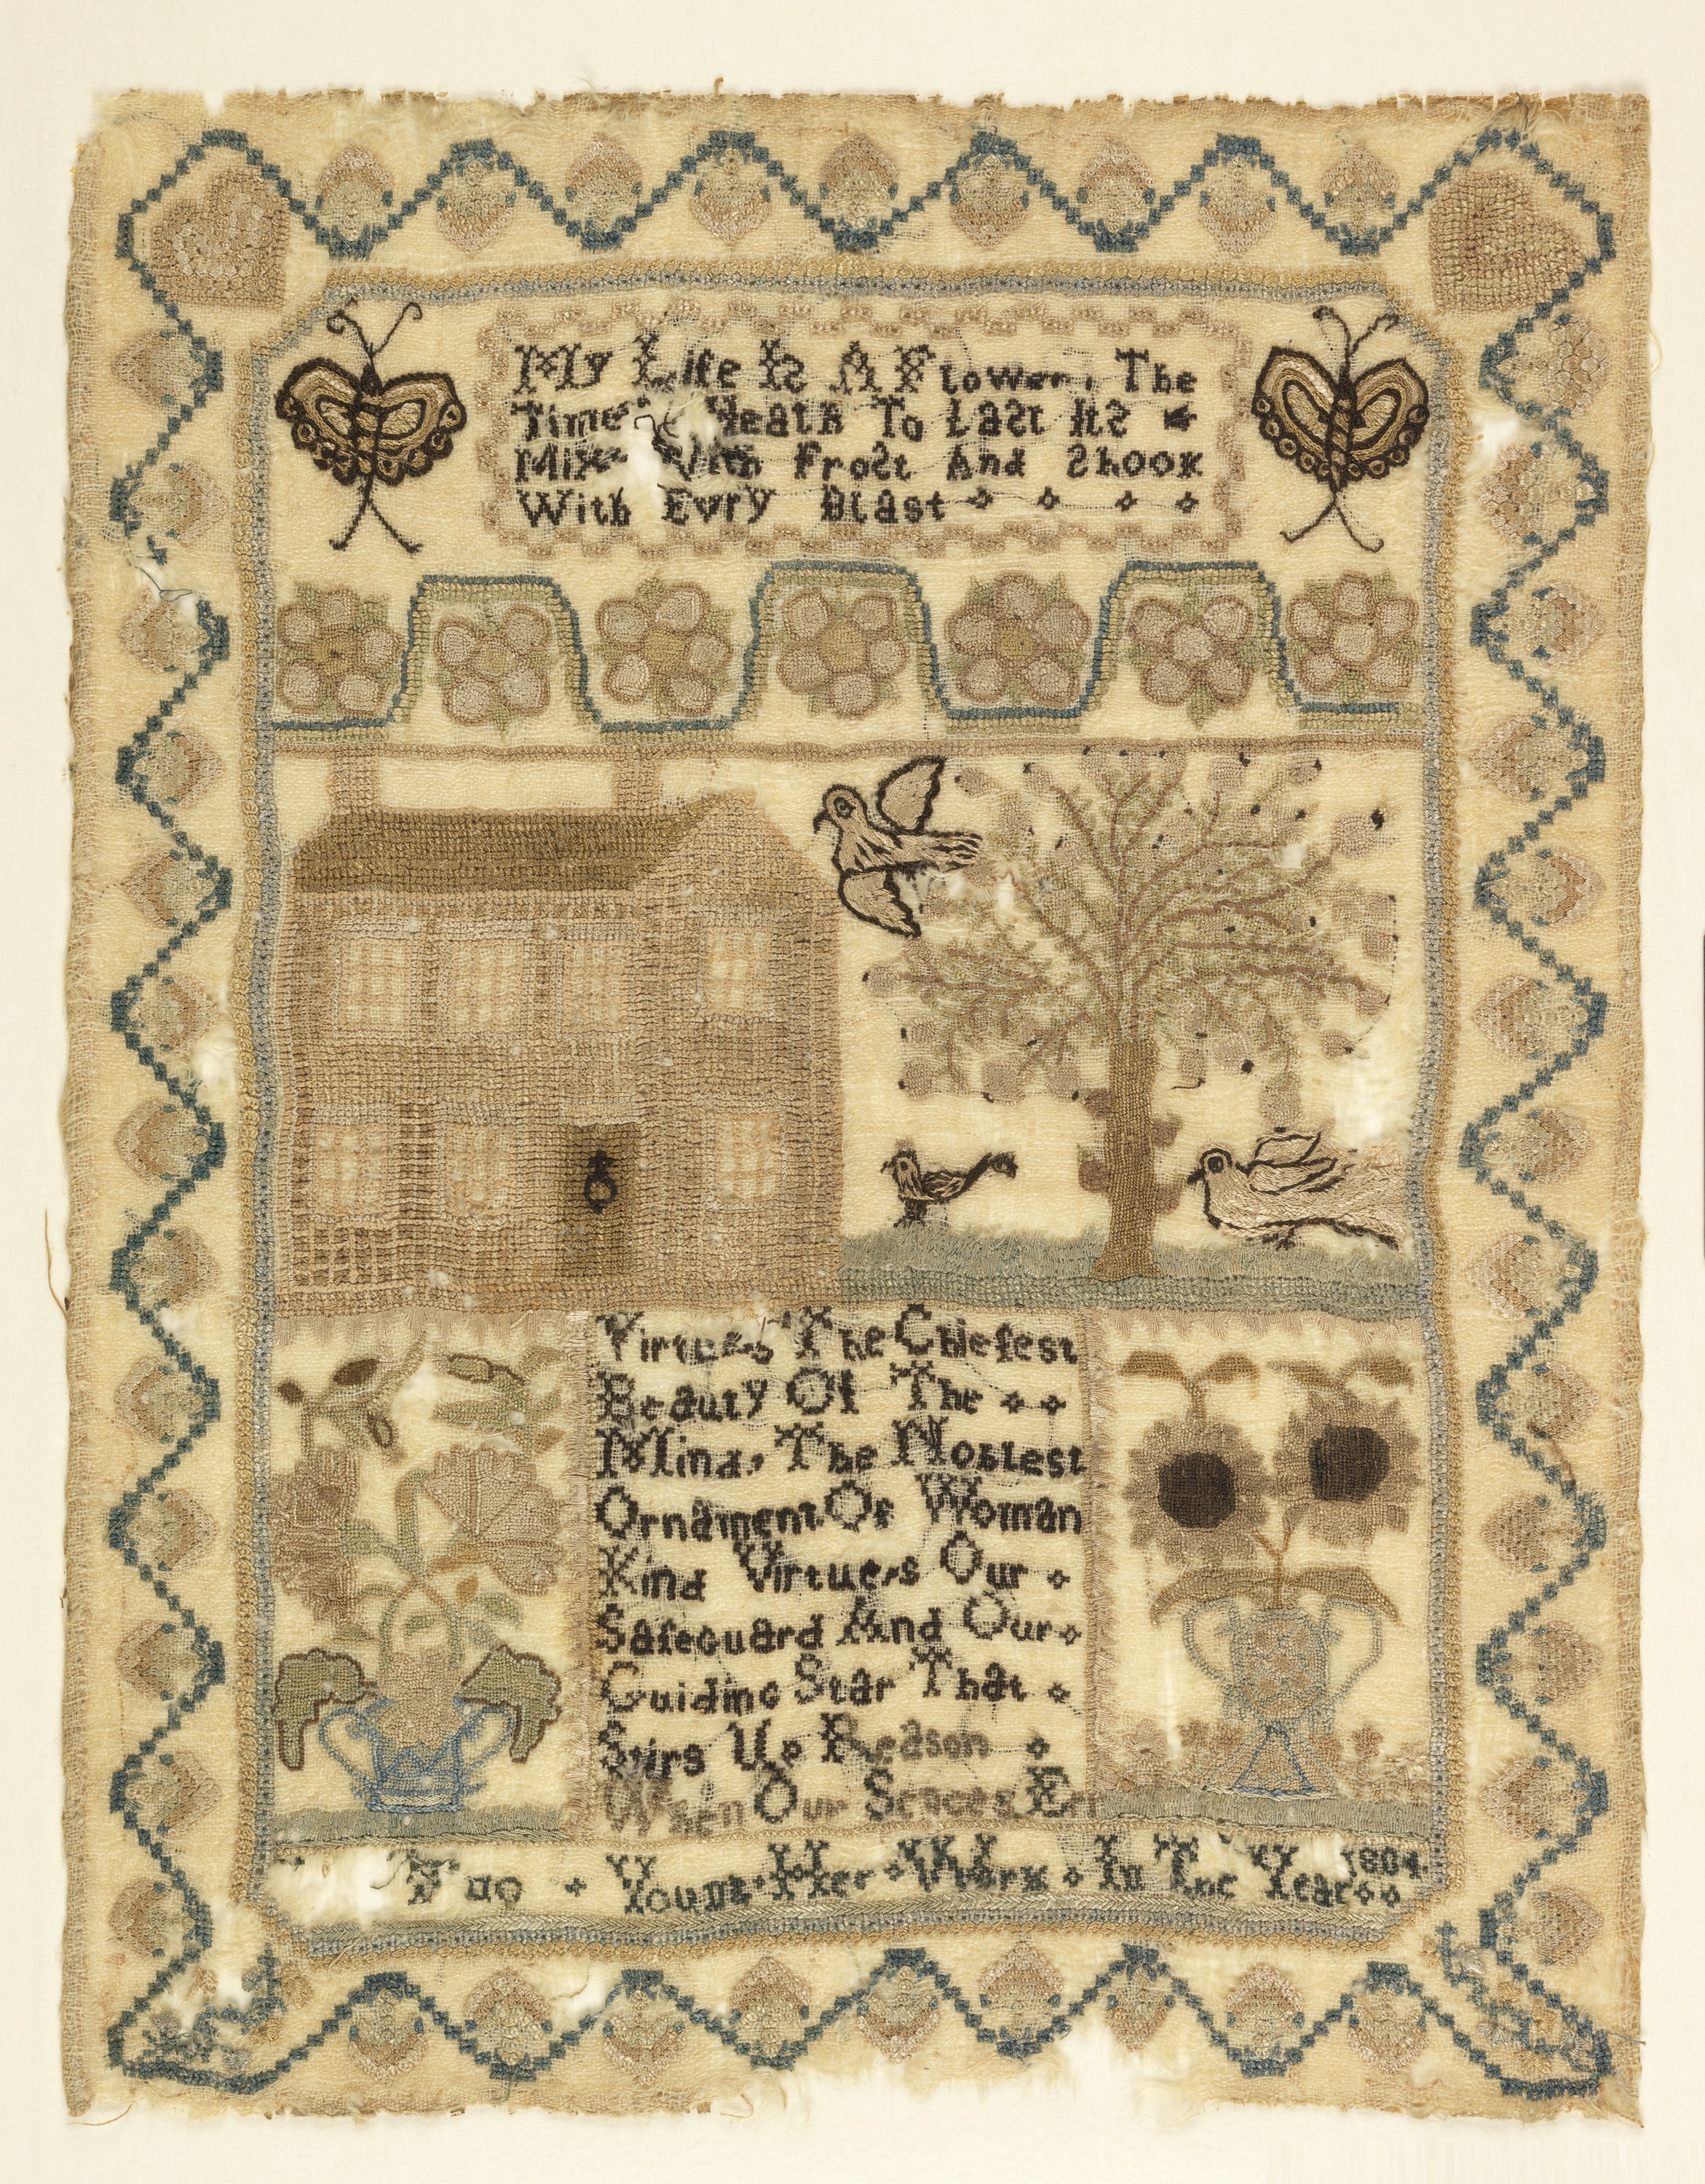 My Life Is A Flower, The
Time Heath To Last Its
Mix With Frost And Shook
With Evry Blast
Virtues The Chiefest
Beauty Of The
Mind, The Noblest
Ornament Of Woman
Kind Virtues Our
Safeguard And Our
Guiding Star That
Stirs Up Reason
When Our Sences Er
Yount Her Work In The Year 1804